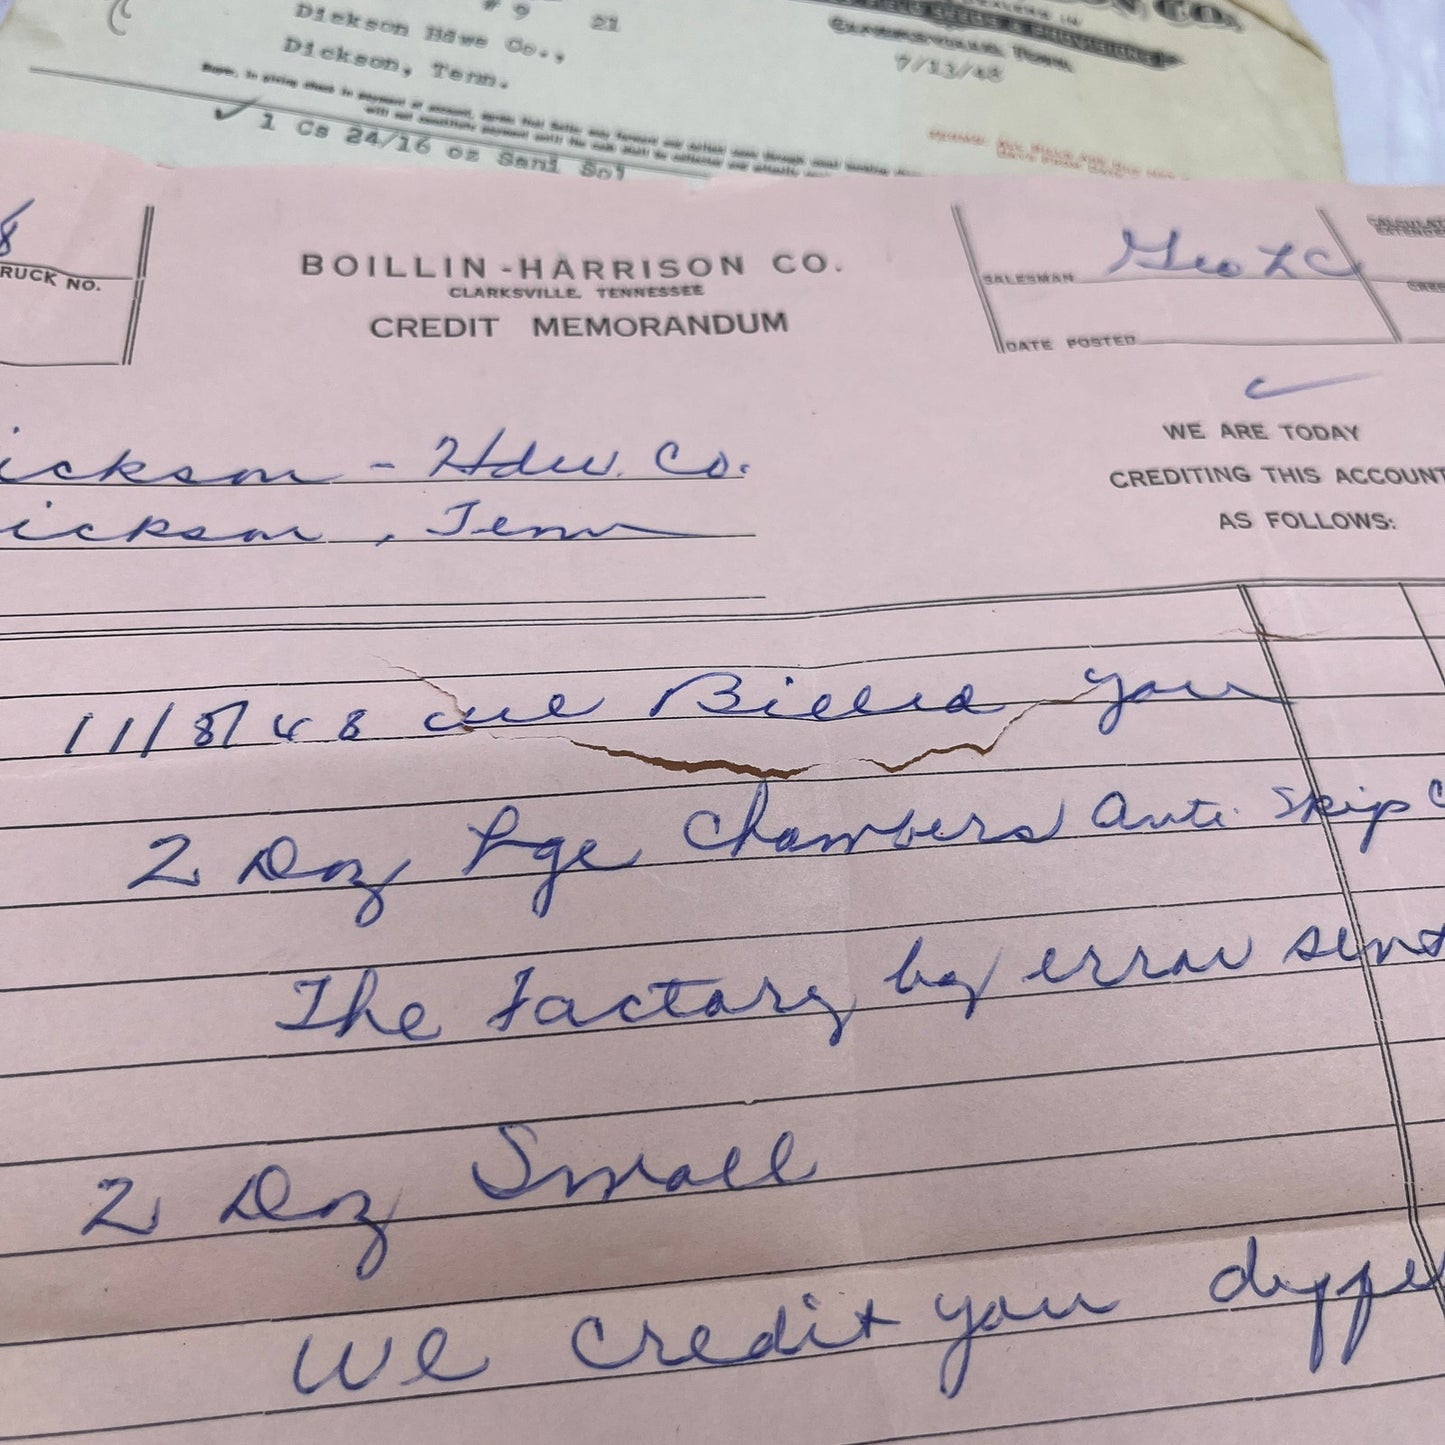 # 9 21
Dickson Hdwe Co.,
Dickson, Tenn.
7/13/48
1 Cs 24/16 oz Sani Sol
8
RUCK NO.
BOILLIN-HARRISON CO.
CLARKSVILLE, TENNESSEE
CREDIT MEMORANDUM
SALESMAN Geo L C
DATE POSTED
ickson - Hdw. Co.
ickson, Tenn
WE ARE TODAY
CREDITING THIS ACCOUNT
AS FOLLOWS:
11/8/48 we Billed you
2 Doz Lge Chambers Anti Skip C
The Factory by error sent
2 Doz Small
We credit you diffe